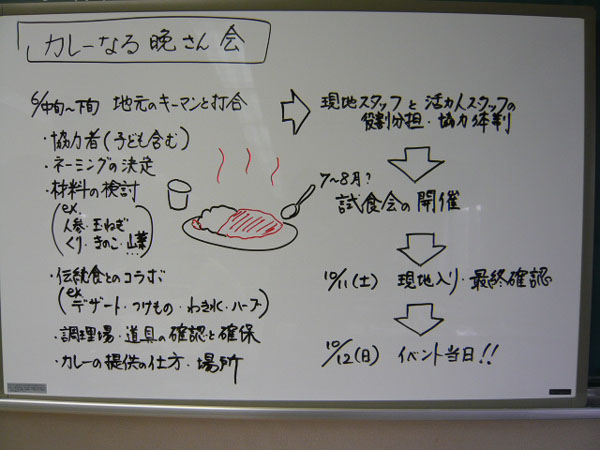 カレーなる晩さん会
6/中旬〜下旬 地元のキーマンと打合
・協力者(子ども含む)
・ネーミングの決定
・材料の検討
(ex.
人参・玉ねぎ
くり・きのこ・山菜
…)
・伝統食とのコラボ
(ex
デザート・つけもの・わき水・ハーブ)
・調理場・道具の確認と確保
・カレーの提供の仕方・場所
現地スタッフと活力人スタッフの
役割分担・協力体制
7〜8月?
試食会の開催
10/11(土) 現地入り・最終確認
10/12(日) イベント当日!!